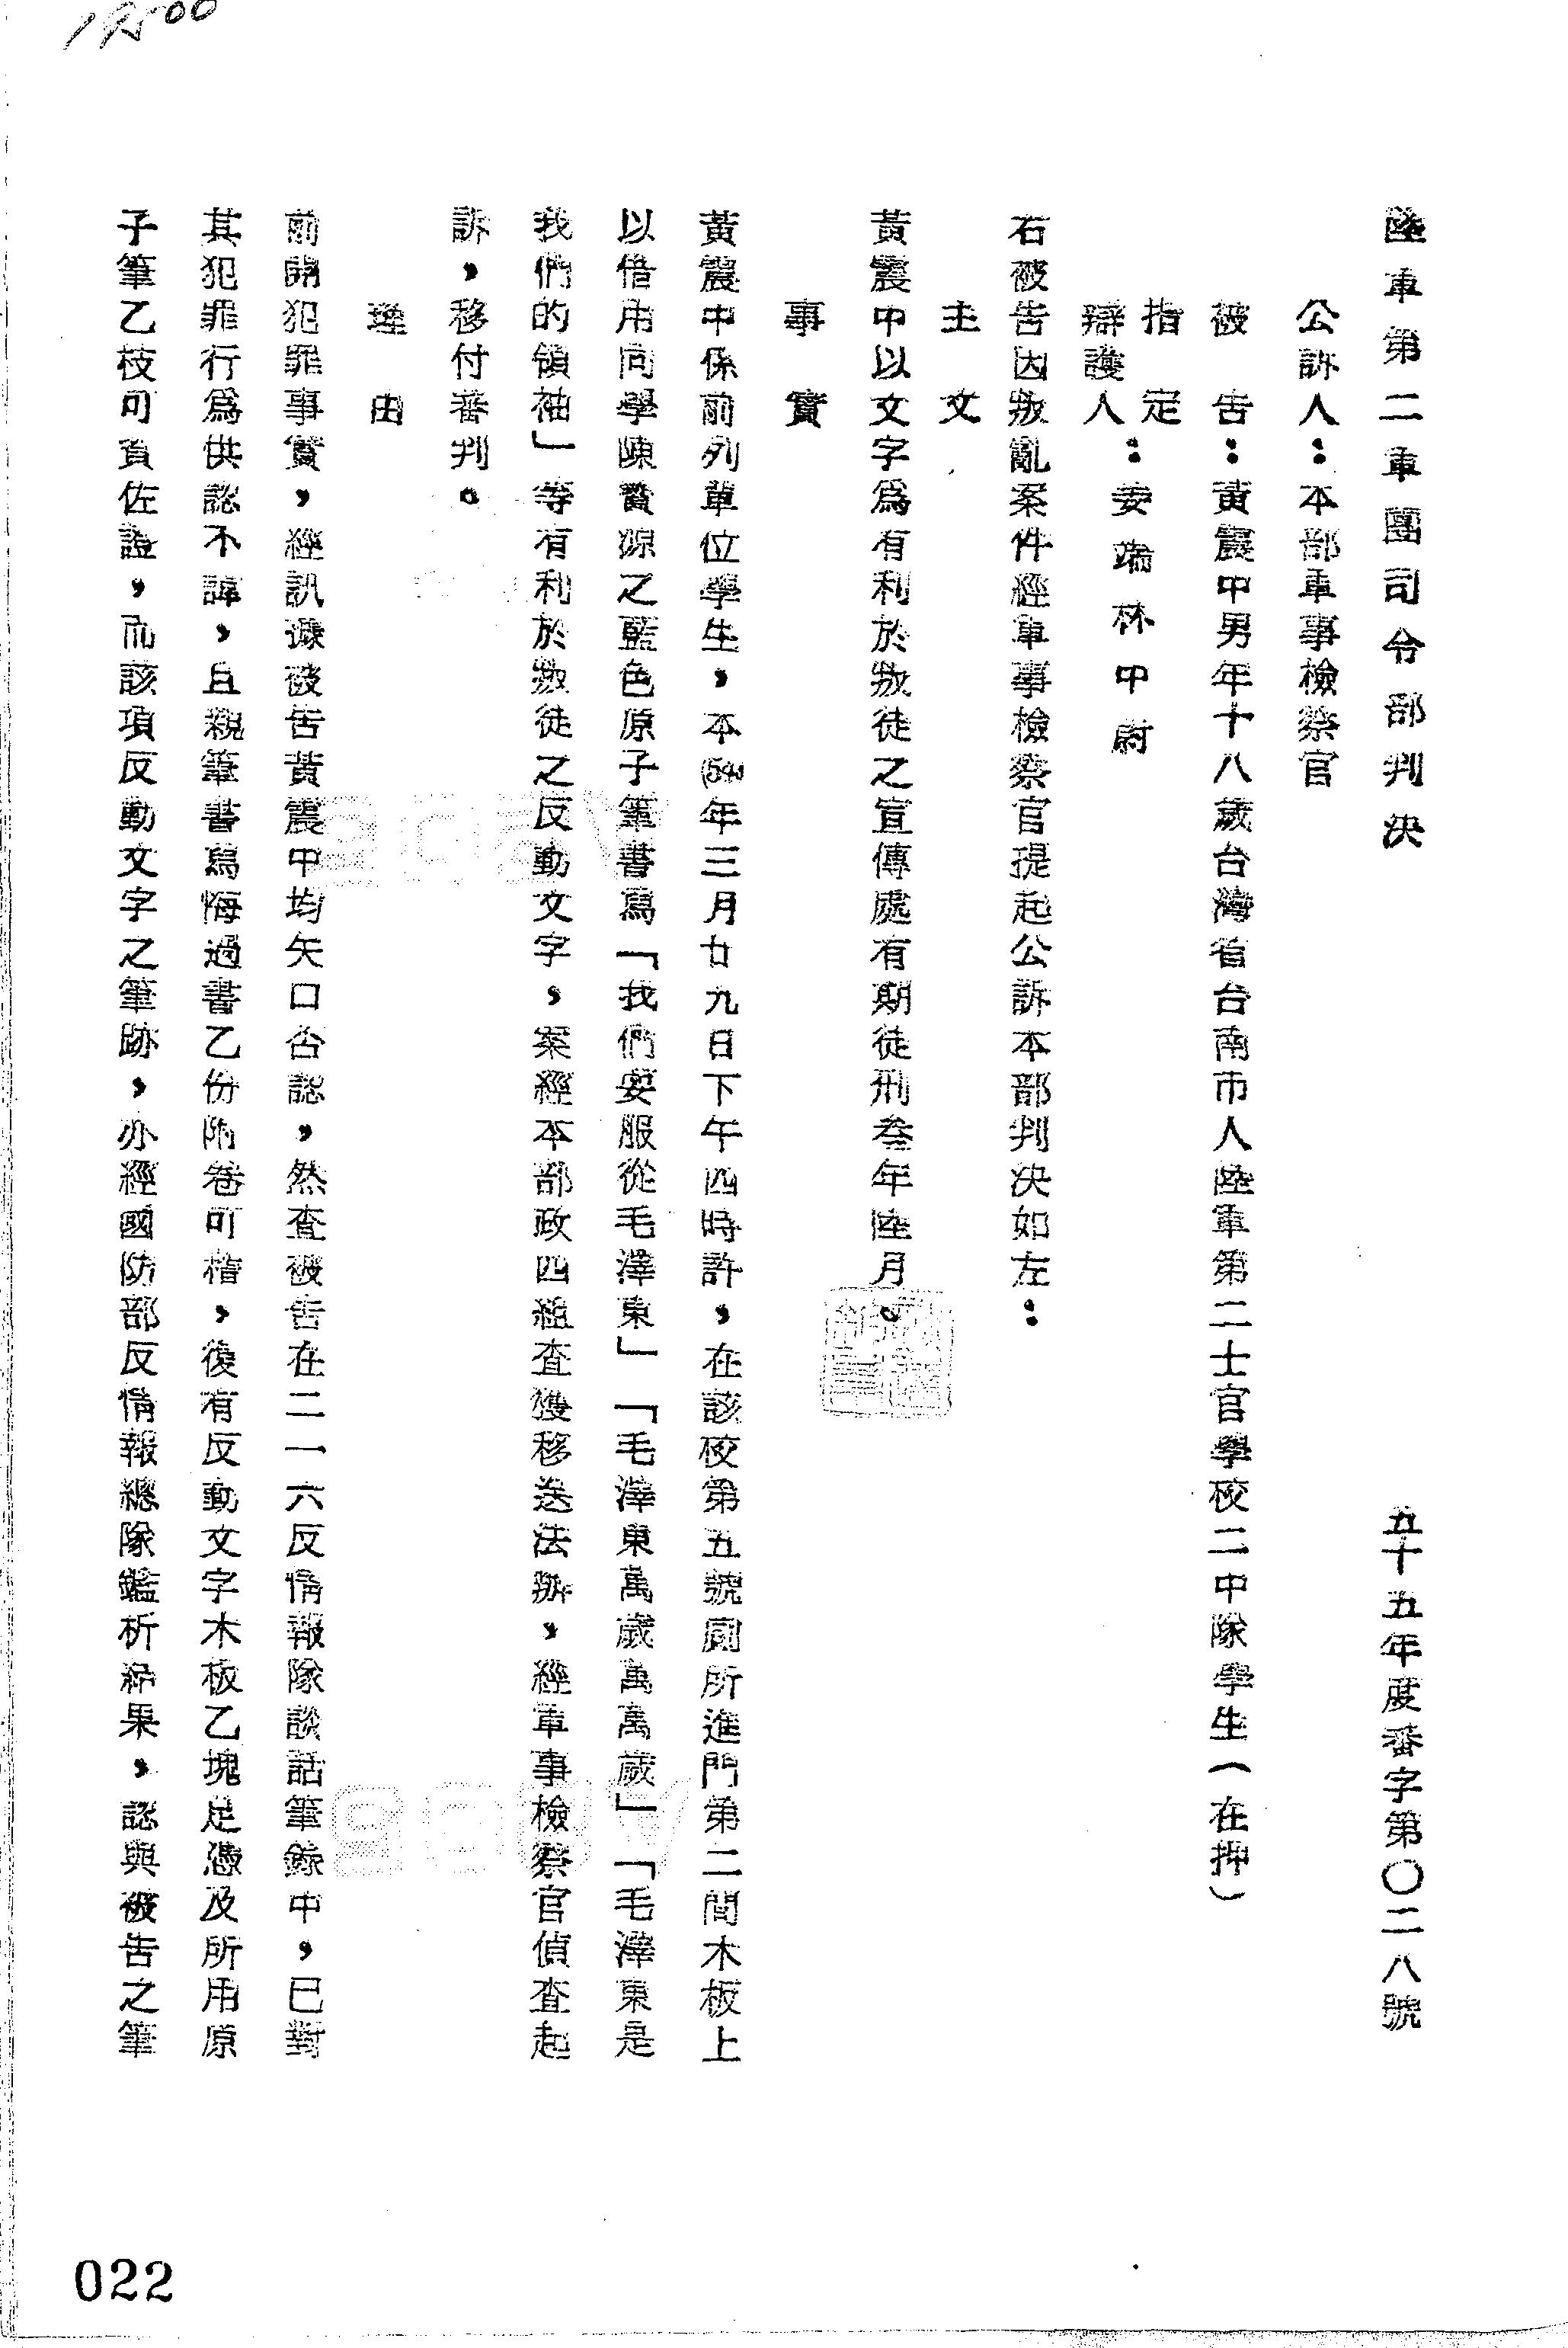 陸軍第二軍團司令部判決
五十五年度審字第〇二八號
公訴人：本部軍事檢察官
被告：黃震中男年十八歲台灣省台南市人陸軍第二士官學校二中隊學生（在押）
指定
辯護人：婁端林中尉
右被告因叛亂案件經軍事檢察官提起公訴本部判決如左：
主文
黃震中以文字為有利於叛徒之宣傳處有期徒刑叁年陸月。
事實
黃震中係前列單位學生，本(54)年三月廿九日下午四時許，在該校第五號厠所進門第二間木板上
以借用同學陳貴源之藍色原子筆書寫「我們要服從毛澤東」「毛澤東萬歲萬萬歲」「毛澤東是
我們的領袖」等有利於叛徒之反動文字，案經本部政四組查獲移送法辦，經軍事檢察官偵查起
訴，移付審判。
理由
前開犯罪事實，經訊據被告黃震中均矢口否認，然查被告在二一六反情報隊談話筆錄中，已對
其犯罪行為供認不諱，且親筆書寫悔過書乙份附卷可稽，復有反動文字木板乙塊足憑及所用原
子筆乙枝可資佐證，而該項反動文字之筆跡，亦經國防部反情報總隊鑑析結果，認與被告之筆
022